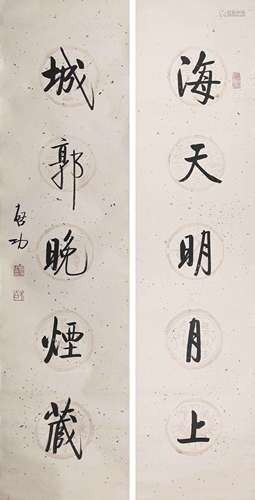 海天明月上
城郭晚煙藏
啓功